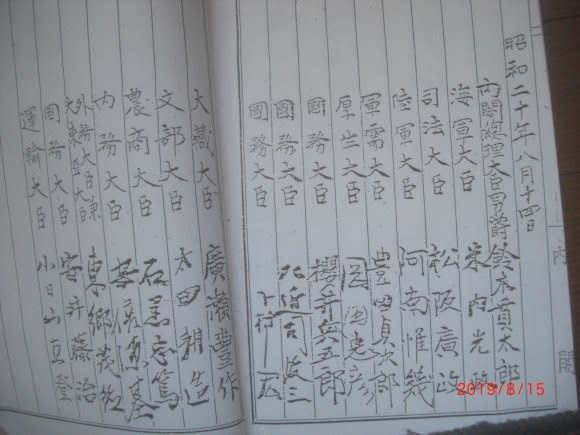 昭和二十年八月十四日
内閣總理大臣男爵 鈴木貫太郎
海軍大臣 米内光政
司法大臣 松阪廣政
陸軍大臣 阿南惟幾
軍需大臣 豊田貞次郎
厚生大臣 岡田忠彦
國務大臣 櫻井兵五郎
國務大臣 左近司政三
國務大臣 下村宏
大藏大臣 廣瀬豊作
文部大臣 太田耕造
農商大臣 石黒忠篤
内務大臣 安倍源基
外務大臣兼
大東亞大臣 東郷茂徳
國務大臣 安井藤治
運輸大臣 小日山直登
内閣
2019/8/15